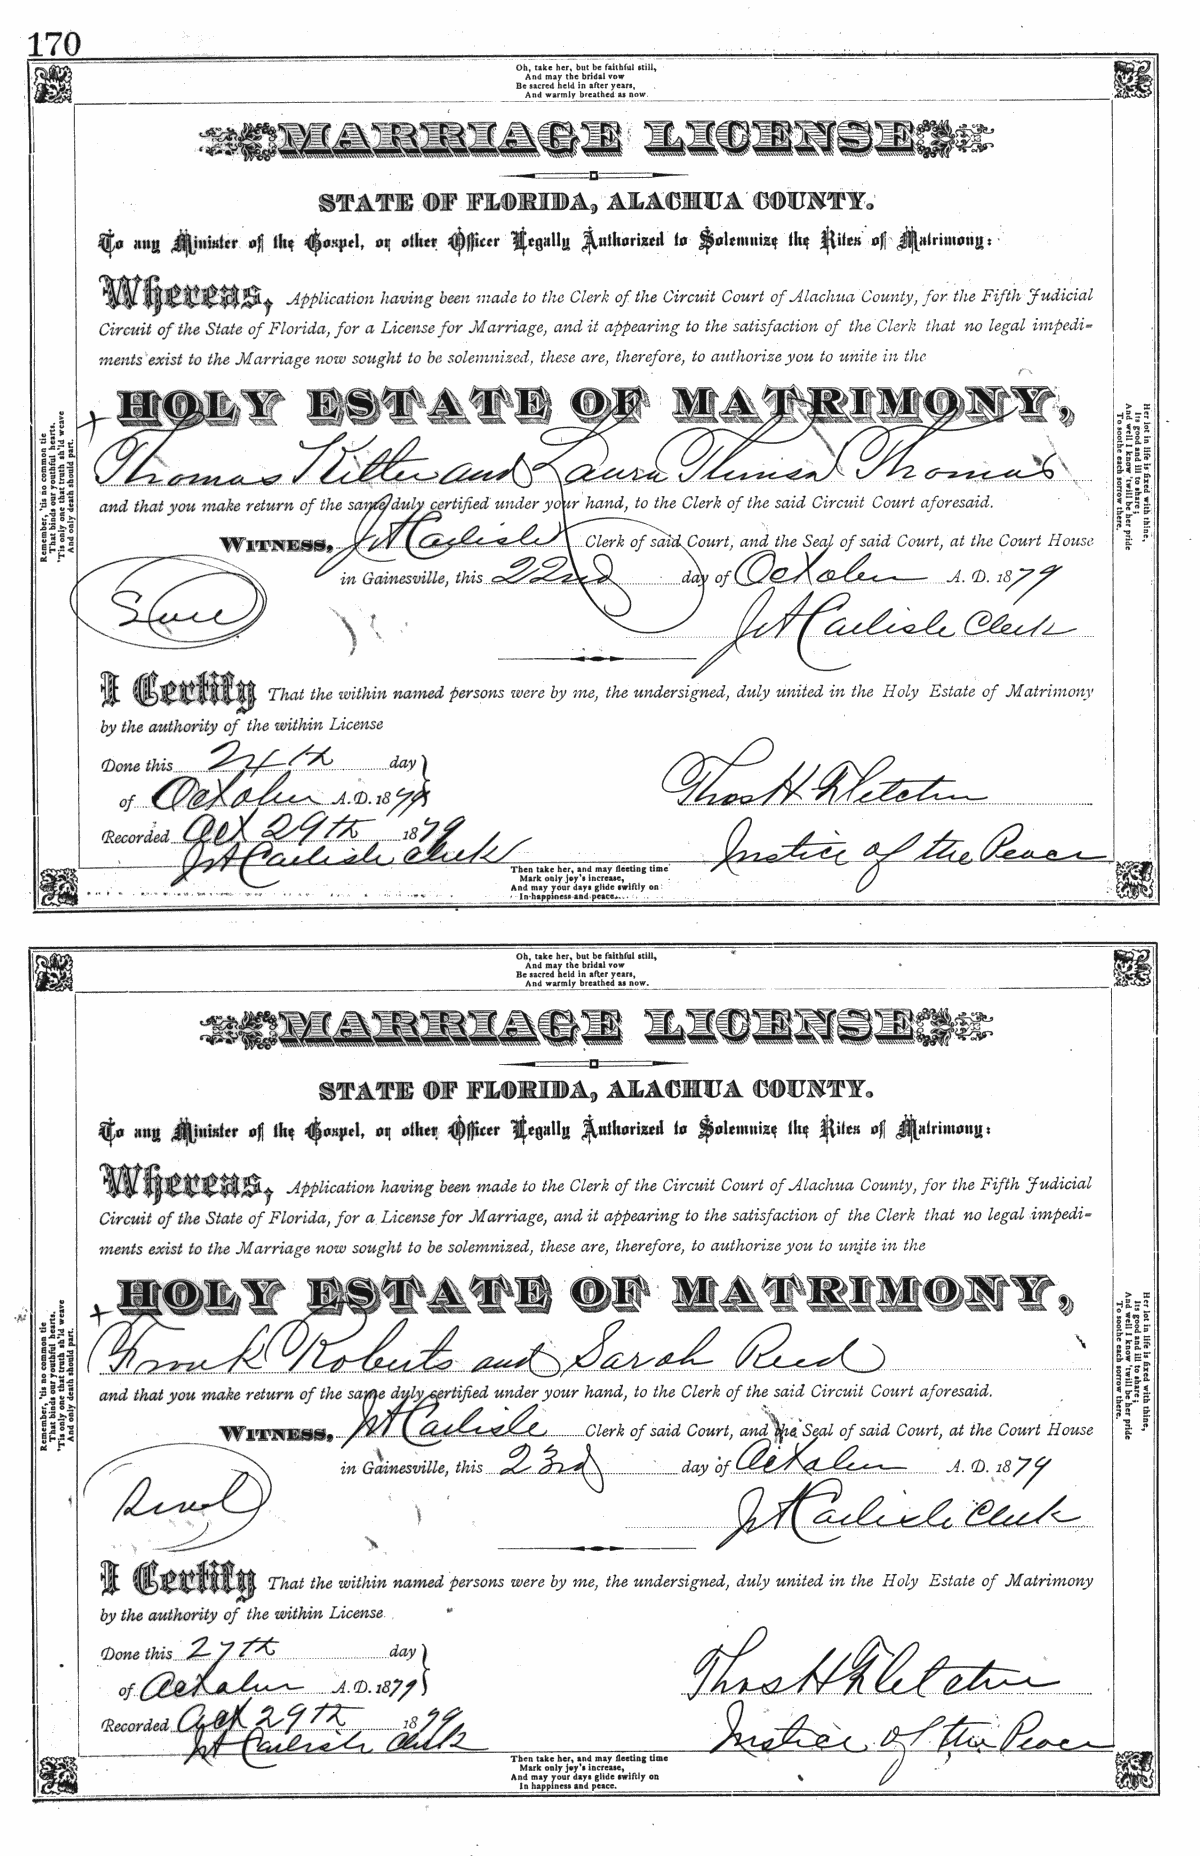 170
Oh, take her, but be faithful still,
And may the bridal vow
Be sacred held in after years,
And warmly breathed as now.
MARRIAGE LICENSE
STATE OF FLORIDA, ALACHUA COUNTY.
To any Minister of the Gospel, or other Officer Legally Authorized to Solemnize the Rites of Matrimony:
Whereas, Application having been made to the Clerk of the Circuit Court of Alachua County, for the Fifth Judicial
Circuit of the State of Florida, for a License for Marriage, and it appearing to the satisfaction of the Clerk that no legal impedi-
ments exist to the Marriage now sought to be solemnized, these are, therefore, to authorize you to unite in the
HOLY ESTATE OF MATRIMONY,
Thomas and Laura Thomas
and that you make return of the same duly certified under your hand, to the Clerk of the said Circuit Court aforesaid.
WITNESS, J A Carlisle Clerk of said Court, and the Seal of said Court, at the Court House
in Gainesville, this 22nd day of October A. D. 1879
J A Carlisle Clerk
Seal
I Certify That the within named persons were by me, the undersigned, duly united in the Holy Estate of Matrimony
by the authority of the within License
Done this 24th day
of October A. D. 1879
Thos H Fletcher
Recorded Oct 29th 1879
J A Carlisle Clerk
Justice of the Peace
Remember, 'tis no common tie
That binds our youthful hearts,
'Tis only one that truth sh'ld weave
And only death should part.
Her lot in life is fixed with thine,
Its good and ill to share;
And well I know 'twill be her pride
To soothe each sorrow there.
Then take her, and may fleeting time
Mark only joy's increase,
And may your days glide swiftly on
In happiness and peace.
Oh, take her, but be faithful still,
And may the bridal vow
Be sacred held in after years,
And warmly breathed as now.
MARRIAGE LICENSE
STATE OF FLORIDA, ALACHUA COUNTY.
To any Minister of the Gospel, or other Officer Legally Authorized to Solemnize the Rites of Matrimony:
Whereas, Application having been made to the Clerk of the Circuit Court of Alachua County, for the Fifth Judicial
Circuit of the State of Florida, for a License for Marriage, and it appearing to the satisfaction of the Clerk that no legal impedi-
ments exist to the Marriage now sought to be solemnized, these are, therefore, to authorize you to unite in the
HOLY ESTATE OF MATRIMONY,
Frank Roberts and Sarah Reed
and that you make return of the same duly certified under your hand, to the Clerk of the said Circuit Court aforesaid.
WITNESS, J A Carlisle Clerk of said Court, and the Seal of said Court, at the Court House
in Gainesville, this 23rd day of October A. D. 1879
J A Carlisle Clerk
Seal
I Certify That the within named persons were by me, the undersigned, duly united in the Holy Estate of Matrimony
by the authority of the within License
Done this 27th day
of October A. D. 1879
Thos H Fletcher
Recorded Oct 29th 1879
J A Carlisle Clerk
Justice of the Peace
Remember, 'tis no common tie
That binds our youthful hearts,
'Tis only one that truth sh'ld weave
And only death should part.
Her lot in life is fixed with thine,
Its good and ill to share;
And well I know 'twill be her pride
To soothe each sorrow there.
Then take her, and may fleeting time
Mark only joy's increase,
And may your days glide swiftly on
In happiness and peace.